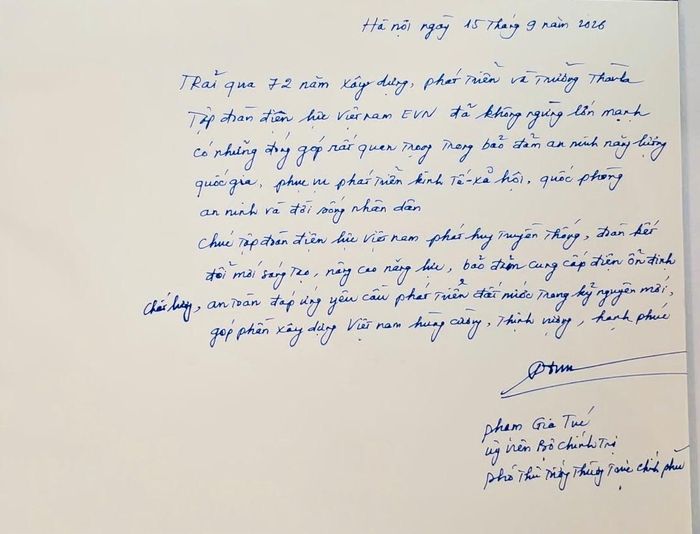 Hà nội ngày 15 tháng 9 năm 2026
Trải qua 72 năm xây dựng, phát triển và trưởng thành
Tập đoàn điện lực Việt nam EVN đã không ngừng lớn mạnh
có những đóng góp rất quan trọng trong bảo đảm an ninh năng lượng
quốc gia, phục vụ phát triển kinh tế-xã hội, quốc phòng
an ninh và đời sống nhân dân
Chúc Tập đoàn điện lực Việt nam phát huy truyền thống, đoàn kết
đổi mới sáng tạo, nâng cao năng lực, bảo đảm cung cấp điện ổn định
chất lượng, an toàn đáp ứng yêu cầu phát triển đất nước trong kỷ nguyên mới,
góp phần xây dựng Việt nam hùng cường, thịnh vượng, hạnh phúc
Phạm Gia Túc
Uỷ viên Bộ Chính Trị
Phó Thủ tướng Thường trực chính phủ